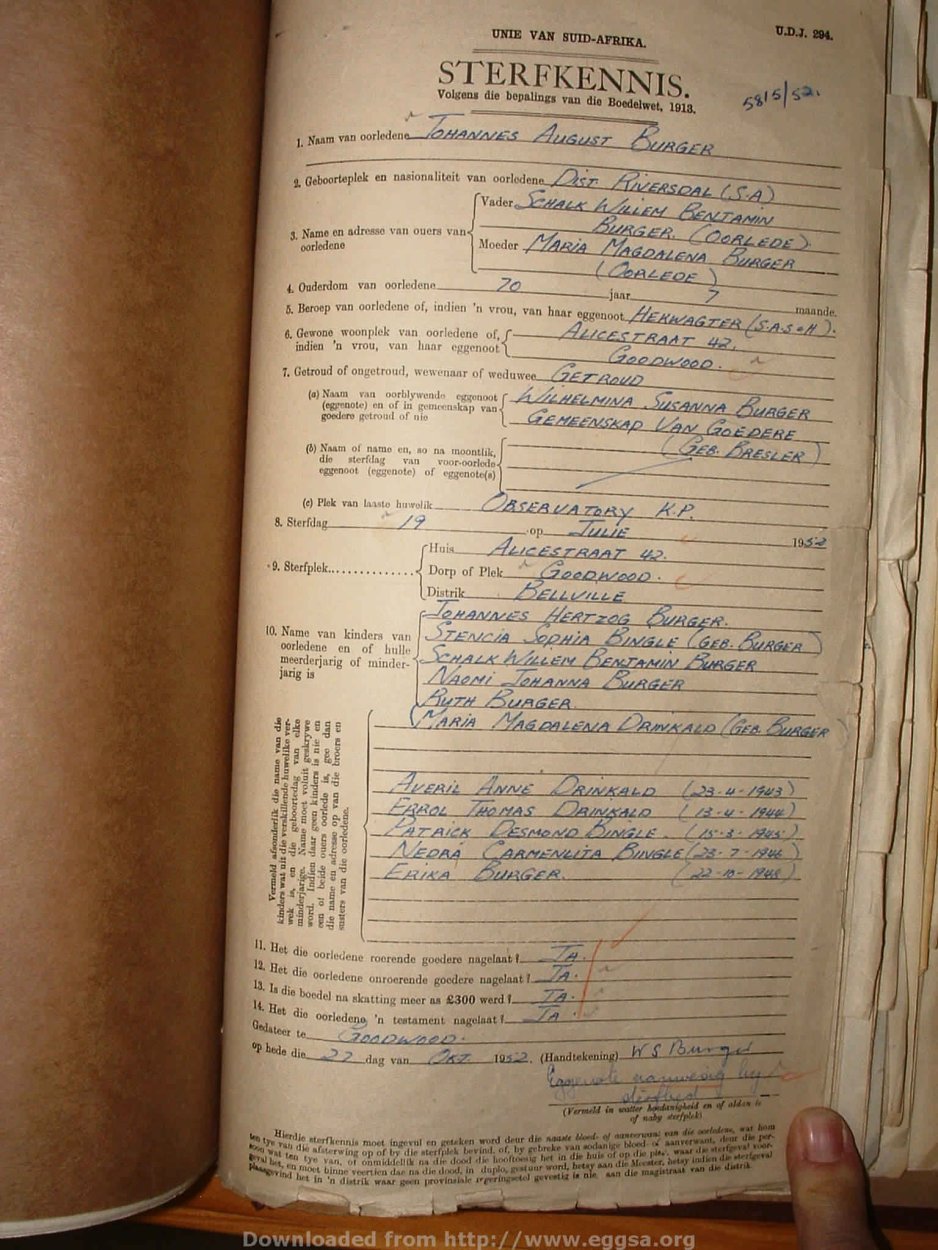 UNIE VAN SUID-AFRIKA.
U.D.J. 294.
STERFKENNIS.
Volgens die bepalings van die Boedelwet, 1913.
5815/52.
1. Naam van oorledene JOHANNES AUGUST BURGER
2. Geboorteplek en nasionaliteit van oorledene DIST RIVERSDAL (S.A)
3. Name en adresse van ouers van oorledene
Vader SCHALK WILLEM BENJAMIN
BURGER. (OORLEDE).
Moeder MARIA MAGDALENA BURGER
(OORLEDE)
4. Ouderdom van oorledene 70 jaar 7 maande.
5. Beroep van oorledene of, indien 'n vrou, van haar eggenoot HEKWAGTER (S.A.S & H).
6. Gewone woonplek van oorledene of, ALICESTRAAT 42,
indien 'n vrou, van haar eggenoot GOODWOOD.
7. Getroud of ongetroud, wewenaar of weduwee GETROUD
(a) Naam van oorblywende eggenoot WILHELMINA SUSANNA BURGER
(eggenote) en of in gemeenskap van
goedere getroud of nie GEMEENSKAP VAN GOEDERE
(GEB. BRESLER)
(b) Naam of name en, so na moontlik,
die sterfdag van voor-oorlede
eggenoot (eggenote) of eggenote(s)
(c) Plek van laaste huwelik OBSERVATORY K.P.
8. Sterfdag 19 op JULIE 1952
9. Sterfplek..............
Huis ALICESTRAAT 42.
Dorp of Plek GOODWOOD.
Distrik BELLVILLE
10. Name van kinders van
oorledene en of hulle
meerderjarig of minder-
jarig is
JOHANNES HERTZOG BURGER.
STENCIA SOPHIA BINGLE (GEB. BURGER)
SCHALK WILLEM BENJAMIN BURGER
NAOMI JOHANNA BURGER
RUTH BURGER
MARIA MAGDALENA DRINKALD (GEB. BURGER
Vermeld afsonderlik die name van die
kinders wat uit die verskillende huwelike ver-
wek is, en die geboortedag van elke
minderjarige. Name moet voluit geskrywe
word. Indien daar geen kinders is nie en
een of beide ouers oorlede is, gee dan
die name en adresse op van die broers en
susters van die oorledene.
AVERIL ANNE DRINKALD (23-4-1943)
ERROL THOMAS DRINKALD (13-4-1944)
PATRICK DESMOND BINGLE. (15-3-1945)
NEDRA CARMENLITA BINGLE (28-7-1946)
ERIKA BURGER. (22-10-1948)
11. Het die oorledene roerende goedere nagelaat? JA.
12. Het die oorledene onroerende goedere nagelaat? JA.
13. Is die boedel na skatting meer as £300 werd? JA.
14. Het die oorledene 'n testament nagelaat? JA.
Gedateer te GOODWOOD.
op hede die 22 dag van OKT. 1952. (Handtekening) W S Burger
Eggenote aanwesig by
diesfbed
(Vermeld in watter hoedanigheid en of aldan te
of naby sterfplek)
Hierdie sterfkennis moet ingevul en geteken word deur die naaste bloed- of aanverwant van die oorledene, wat hom
ten tye van die afsterwing op of by die sterfplek bevind, of, by gebreke van sodanige bloed- of aanverwant, deur die per-
soon wat ten tye van, of onmiddellik na die dood die hooftoesig het in die huis of op die plek, waar die sterfgeval voor-
geval het, en moet binne veertien dae na die dood, in duplo, gestuur word, hetsy aan die Meester, hetsy indien die sterfgeval
plaasgevind het in 'n distrik waar geen provinsiale regeringsetel gevestig is nie, aan die magistraat van die distrik.
Downloaded from http://www.eggsa.org